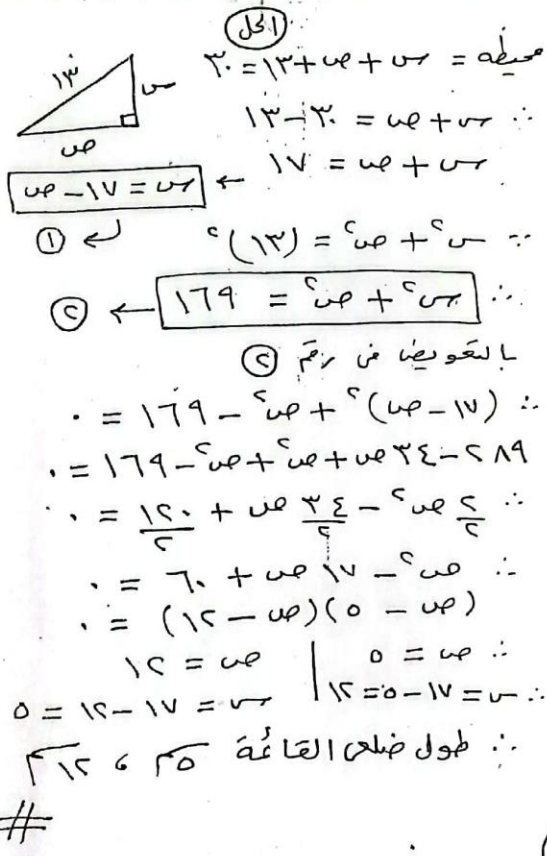 الحل
محيطه = س + ص + ١٣ = ٣٠
١٣
س
ص
∴ س + ص = ٣٠ - ١٣
س + ص = ١٧ ← س = ١٧ - ص
①
∵ س٢ + ص٢ = (١٣)٢
∴ س٢ + ص٢ = ١٦٩ ← ②
بالتعويض فى رقم ②
∴ (١٧ - ص)٢ + ص٢ - ١٦٩ = ٠
٢٨٩ - ٣٤ ص + ص٢ + ص٢ - ١٦٩ = ٠
∴ ٢/٢ ص٢ - ٣٤/٢ ص + ١٢٠/٢ = ٠
∴ ص٢ - ١٧ ص + ٦٠ = ٠
(ص - ٥)(ص - ١٢) = ٠
∴ ص = ٥ | ص = ١٢
∴ س = ١٧ - ٥ = ١٢ | س = ١٧ - ١٢ = ٥
∴ طول ضلعى القائمة ٥ سم ، ١٢ سم
#